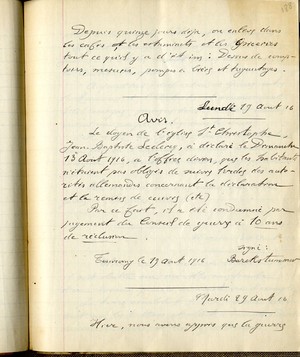 Depuis quinze jours déjà, on enlève dans
les cafés et les estaminets et les Brasseries
tout ce qu'il y a d'étain : Dessus de comp-
toirs, mesures, pompes à bière et tuyautages.
Lundi 19 Août 16
Avis.
Le doyen de l'église St Christophe,
Jean Baptiste Leclercq, a déclaré le Dimanche
13 Août 1916, à l'office divin, que les habitants
n'étaient pas obligés de suivre l'ordre des auto-
rités allemandes concernant la déclaration
et la remise de cuivres (etc)
Par ce fait, il a été condamné par
jugement du Conseil de guerre à 10 ans
de réclusion.
signé :
Tourcoing le 19 août 1916
Mardi 29 Août 16
Hier, nous avons appris que la guerre